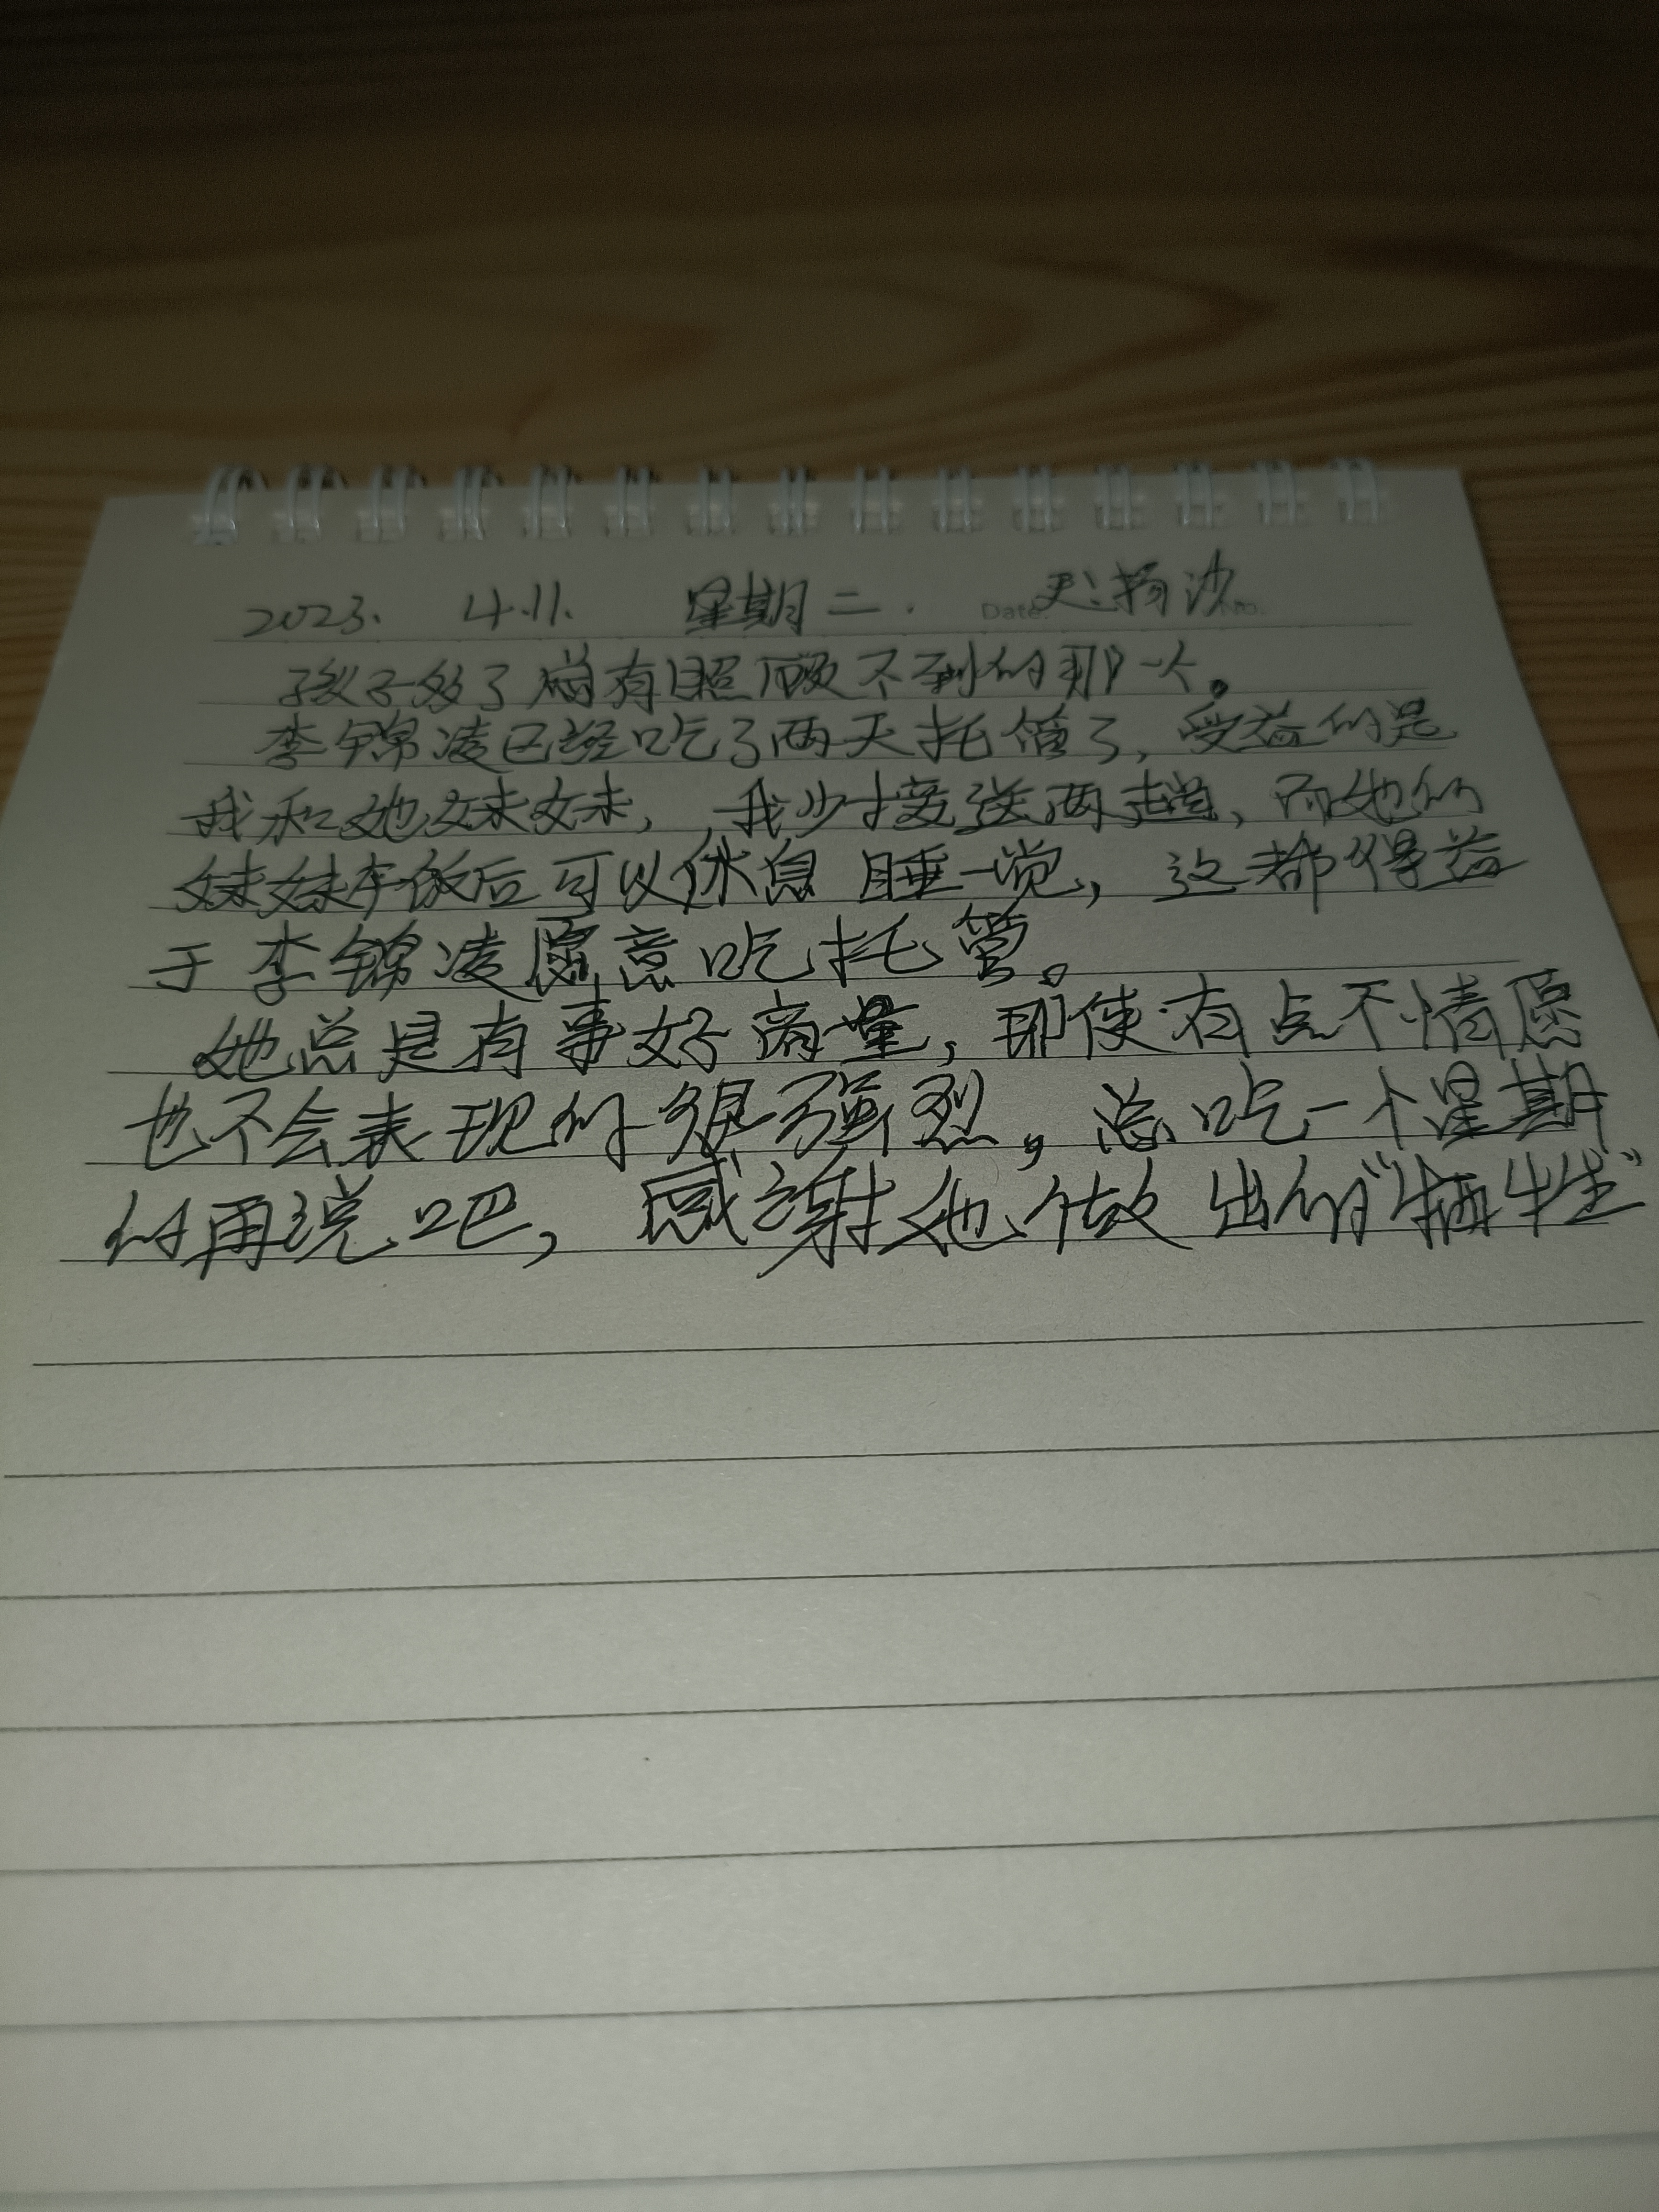 2023. 4.11. 星期二. Date: 天:扬沙 No.
孩子多了总有照顾不到的那一个。
李锦凌已经吃了两天托管了,受益的是
我和她妹妹,我少接送两趟,而她的
妹妹午饭后可以休息 睡一觉,这都得益
于李锦凌愿意吃托管。
她总是有事好商量,即使有点不情愿
也不会表现的很强烈,总吃一个星期
的再说吧,感谢她做出的“牺牲”